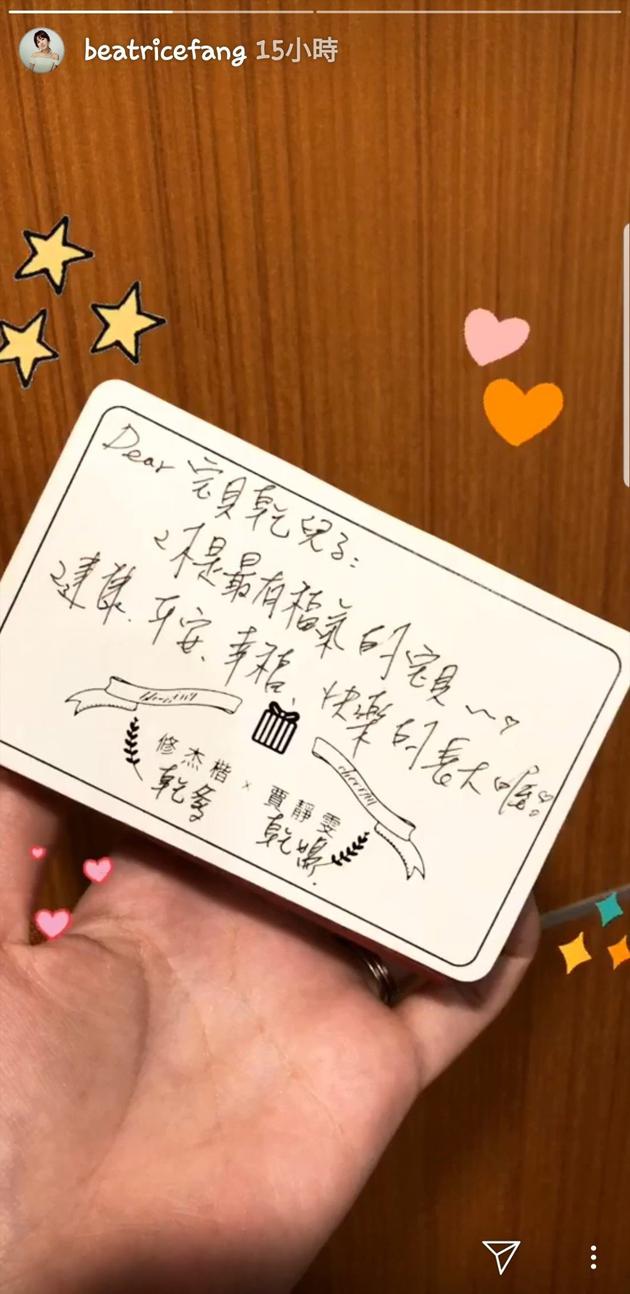 beatricefang 15小時
Dear 寶貝乾兒子:
你是最有福氣的寶貝~♡
健康、平安、幸福、快樂的長大喔!♡
修杰楷 × 賈靜雯
乾爹 乾媽.